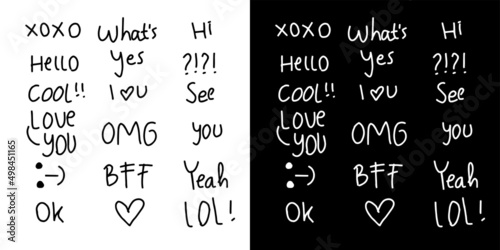 XOXO What's Hi
Hello Yes ?!?!
COOL!! I ♡ U See
LOVE YOU OMG you
:-) BFF Yeah
OK ♡ LOL!
XOXO What's Hi
Hello Yes ?!?!
COOL!! I ♡ U See
LOVE YOU OMG you
:-) BFF Yeah
OK ♡ LOL!
498451165